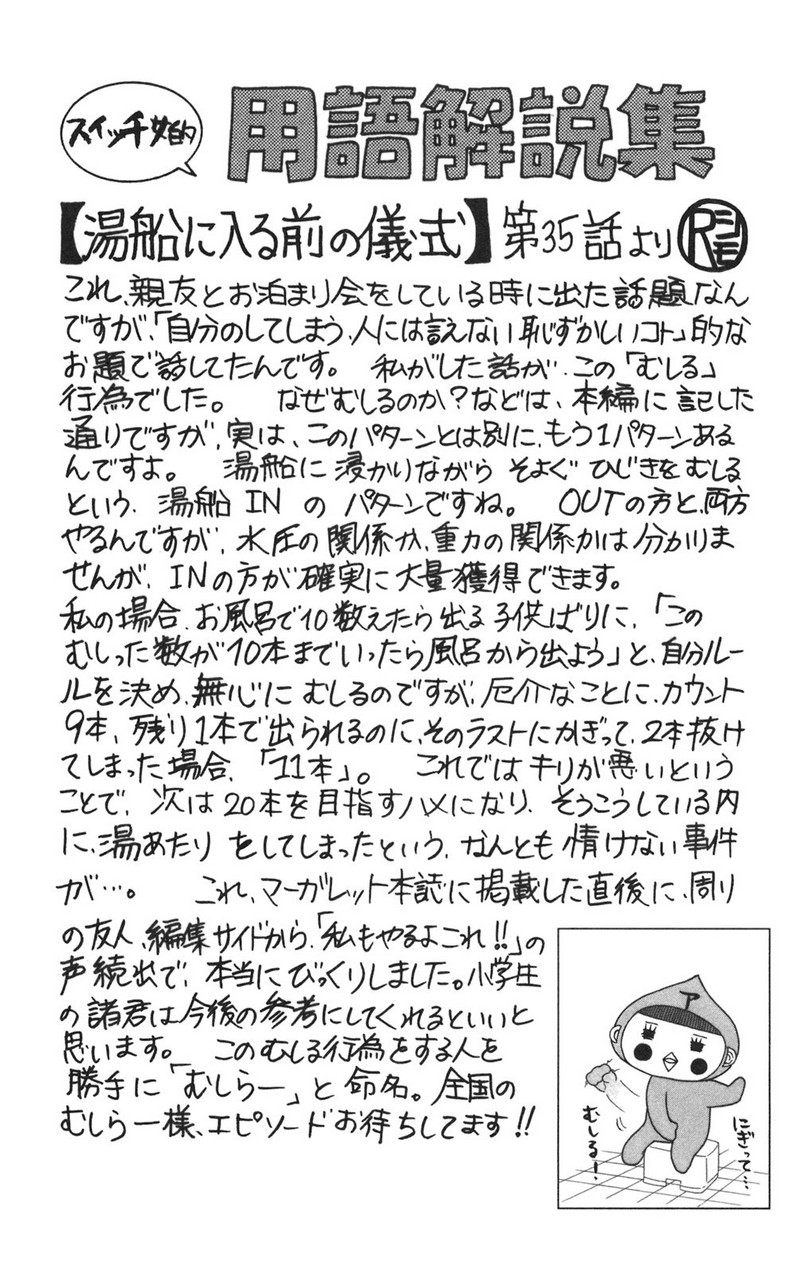 スイッチ女的
用語解説集
【湯船に入る前の儀式】第35話より
Rシモ
これ、親友とお泊まり会をしている時に出た話題なん
ですが、「自分のしてしまう、人には言えない恥ずかしいコト」的な
お題で話してたんです。　私がした話が、この「むしる」
行為でした。　なぜむしるのか？などは、本編に記した
通りですが、実は、このパターンとは別に、もう1パターンある
んですよ。　湯船に浸かりながら そよぐ ひじきをむしる
という、湯船 IN の パターンですね。　OUTの方と、両方
やるんですが、水圧の関係か、重力の関係かは分かりま
せんが、INの方が確実に大量獲得できます。
私の場合、お風呂で10数えたら出る子供ばりに、「この
むしった数が10本までいったら風呂から出よう」と、自分ルー
ルを決め、無心にむしるのですが、厄介なことに、カウント
9本、残り1本で出られるのに、そのラストにかぎって、2本抜け
てしまった場合、「11本」。　これではキリが悪いという
ことで、次は20本を目指すハメになり、そうこうしている内
に、湯あたりをしてしまったという、なんとも情けない事件
が…。　これ、マーガレット本誌に掲載した直後に、周り
の友人、編集サイドから、「私もやるよこれ!!」の
声続出で、本当にびっくりしました。小学生
の諸君は今後の参考にしてくれるといいと
思います。　このむしる行為をする人を
勝手に「むしらー」と命名。全国の
むしらー様、エピソードお待ちしてます!!
ア
にぎって…
むしる！